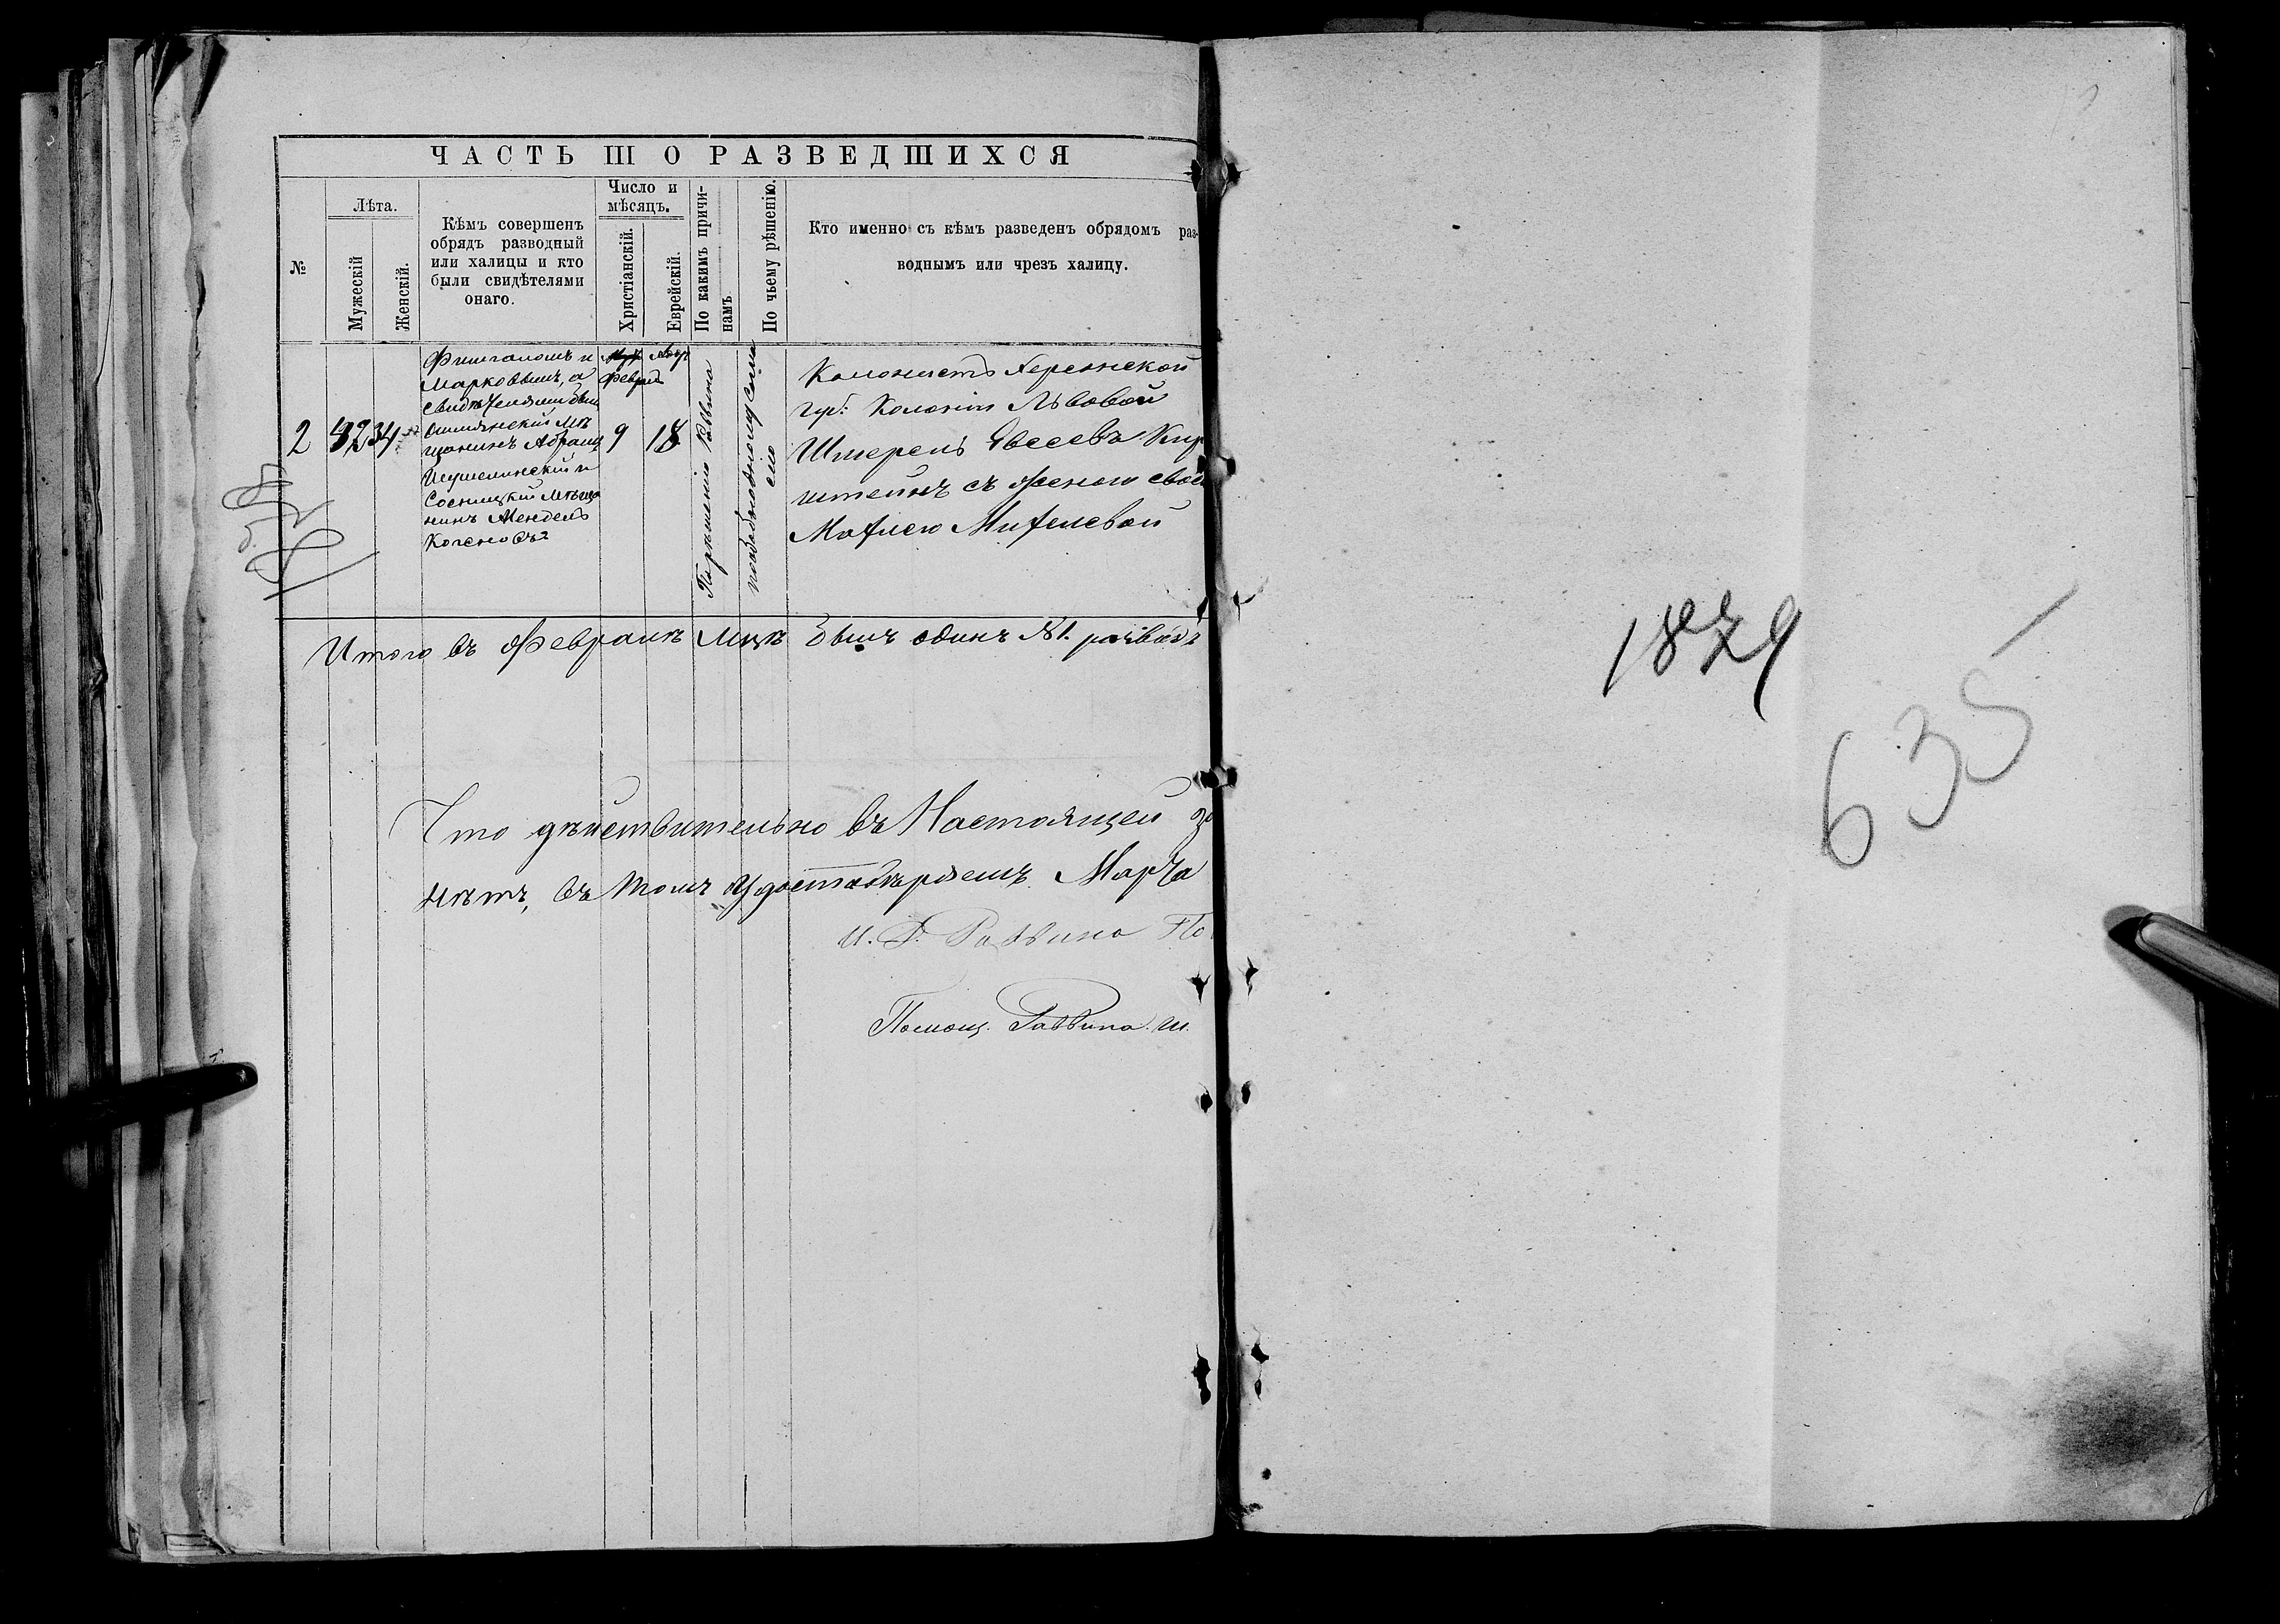 ЧАСТЬ III О РАЗВЕДШИХСЯ
№
Лѣта.
Мужескій
Женскій.
Кѣмъ совершенъ
обрядъ разводный
или халицы и кто
были свидѣтелями
онаго.
Число и
мѣсяцъ.
Христіанскій.
Еврейскій.
По какимъ причи-
намъ
По чьему рѣшенію.
Кто именно съ кѣмъ разведенъ обрядомъ раз-
воднымъ или чрезъ халицу.
2
42
34
Марковымъ, а
свидѣтелями были
Ошмянскій мѣ
щанинъ Абрамъ
и
Сосницкій мѣща
нинъ Мендель
Феврал
9
Адар
18
По рѣшенію Раввина
Колонистъ Херсонской
губ: Колоніи Львовой
Шмерель Евсеевъ Кир
штейнъ съ женою свое
Михелевой
Итого въ Февралѣ м-цѣ былъ одинъ №1. разводъ
Что дѣйствительно въ Настоящей
нѣтъ, въ томъ удостовѣряемъ. Марта
И. Д. Раввина По
Помощ. Раввина Ш.
1879
635